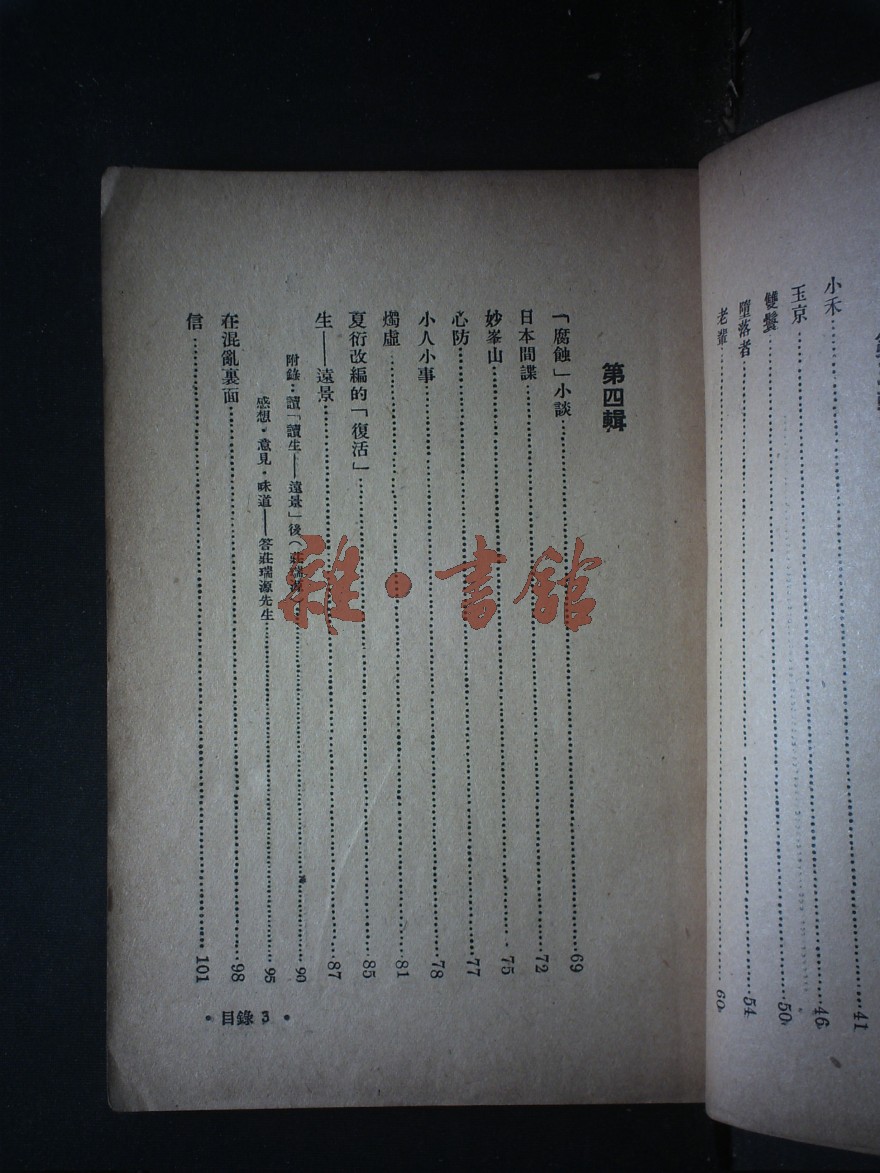 小禾……41
玉京……46
雙鬢……50
墮落者……54
老輩……60
第四輯
「腐蝕」小談……69
日本間諜……72
妙峯山……75
心防……77
小人小事……78
燭虛……81
夏衍改編的「復活」……85
生——遠景……87
附錄・讀「讀生——遠景」後（莊瑞源）……90
感想・意見・味道——答莊瑞源先生……95
在混亂裏面……98
信……101
・目錄 3・
雜・書館